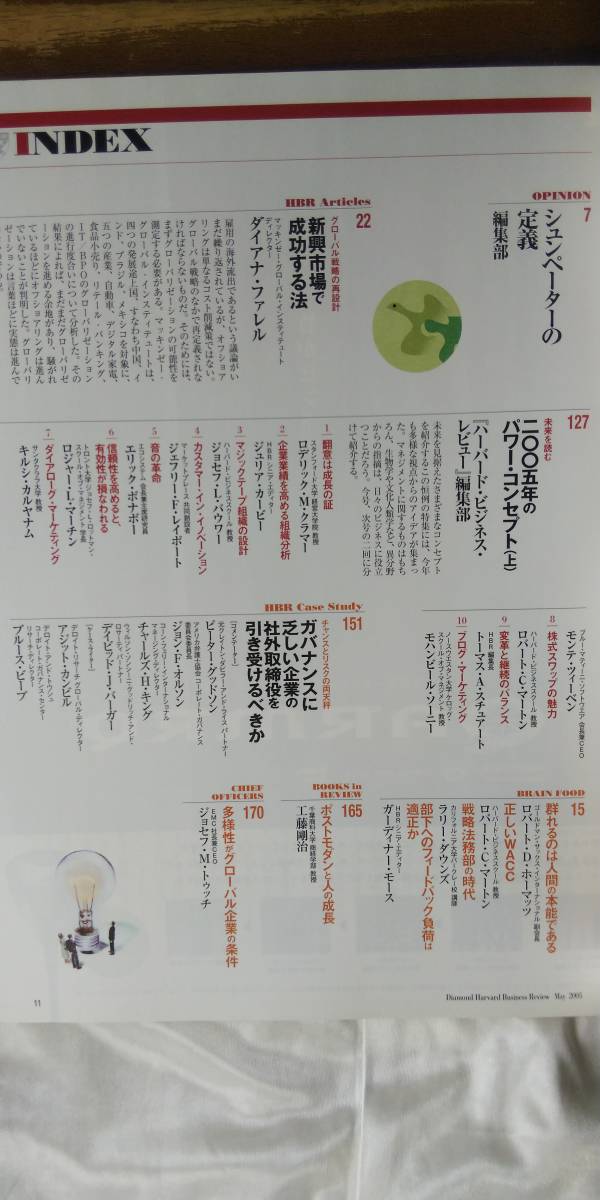 INDEX
OPINION
7
シュンペーターの
定義
編集部
HBR Articles
22
グローバル戦略の再設計
新興市場で
成功する法
マッキンゼー・グローバル・インスティテュート
ディレクター
ダイアナ・ファレル
雇用の海外流出であるという議論がい
まだ繰り返されているが、オフショア
リングは単なるコスト削減策ではない。
グローバル戦略のなかで再定義されな
ければならないものだ。そのためには、
まずグローバリゼーションの可能性を
測定する必要がある。マッキンゼー・
グローバル・インスティテュートは、
四つの発展途上国、すなわち中国、イ
ンド、ブラジル、メキシコを対象に、
五つの産業、自動車、デジタル家電、
食品小売り、リテール・バンキング、
IT／BPOのグローバリゼーション
の進行度合いについて分析した。その
結果によれば、まだまだグローバリゼ
ーションを進める余地があり、騒がれ
ているほどにオフショアリングは進ん
でいないことが判明した。グローバリ
ゼーションは言葉ほどに実態は進んで
127
未来を読む
二〇〇五年の
パワー・コンセプト（上）
『ハーバード・ビジネス・
レビュー』編集部
未来を見据えたさまざまなコンセプト
を紹介するこの恒例の特集には、今年
も多様な視点からのアイデアが集まっ
た。マネジメントに関するものはもち
ろん、生物学や文化人類学など、異分野
からの指摘は、日々のビジネスに役立
つことだろう。今号、次号の二回に分
けて紹介する。
1
翻意は成長の証
スタンフォード大学 経営大学院 教授
ロデリック・M・クラマー
2
企業業績を高める組織分析
HBR シニア・エディター
ジュリア・カービー
3
マジックテープ組織の設計
ハーバード・ビジネススクール 教授
ジョセフ・L・バウワー
4
カスタマー・イン・イノベーション
マーケットプレース 共同創設者
ジェフリー・F・レイポート
5
音の革命
エコシステム 音長兼主席研究員
エリック・ボナボー
6
信頼性を高めると、
有効性が損なわれる
トロント大学 ジョセフ・L・ロットマン・
スクール・オブ・マネジメント 学長
ロジャー・L・マーチン
7
ダイアローグ・マーケティング
サンタクララ大学 教授
キルシ・カルヤナム
ブルー・マティーニ・ソフトウエア 会長兼CEO
モンテ・ツィーベン
8
株式スワップの魅力
ハーバード・ビジネススクール 教授
ロバート・C・マートン
9
変革と継続のバランス
HBR 編集長
トーマス・A・スチュアート
10
ブログ・マーケティング
ノースウエスタン大学 ケロッグ・
スクール・オブ・マネジメント 教授
モハンビール・ソーニー
HBR Case Study
151
チャンスとリスクの両天秤
ガバナンスに
乏しい企業の
社外取締役を
引き受けるべきか
［コメンテーター］
元クレイトン・ダビラー・アンド・ライス パートナー
ピーター・グッドソン
アメリカ弁護士協会 コーポレート・ガバナンス
委員会委員長
ジョン・F・オルソン
コーン・フェリー・インターナショナル
マネージング・ディレクター
チャールズ・H・キング
ウィルソン・ソンシーニ・グッドリッチ・アンド・
ロサーティ パートナー
デイビッド・J・バーガー
［ケース・ライター］
デロイト・リサーチ グローバル・ディレクター
アジット・カンビル
デロイト・アンド・トウシュ
コーポレート・ガバナンス・センター
リサーチ・ディレクター
ブルース・ビーブ
BRAIN FOOD
15
群れるのは人間の本能である
ゴールドマン・サックス・インターナショナル 副会長
ロバート・D・ホーマッツ
正しいWACC
ハーバード・ビジネススクール 教授
ロバート・C・マートン
戦略法務部の時代
カリフォルニア大学バークレー校 講師
ラリー・ダウンズ
部下へのフィードバック負荷は
適正か
HBR シニア・エディター
ガーディナー・モース
BOOKS in
REVIEW
165
ポストモダンと人の成長
千葉商科大学 商経学部 教授
工藤剛治
CHIEF
OFFICERS
170
多様性がグローバル企業の条件
EMC 社長兼CEO
ジョセフ・M・トゥッチ
11
Diamond Harvard Business Review May 2005